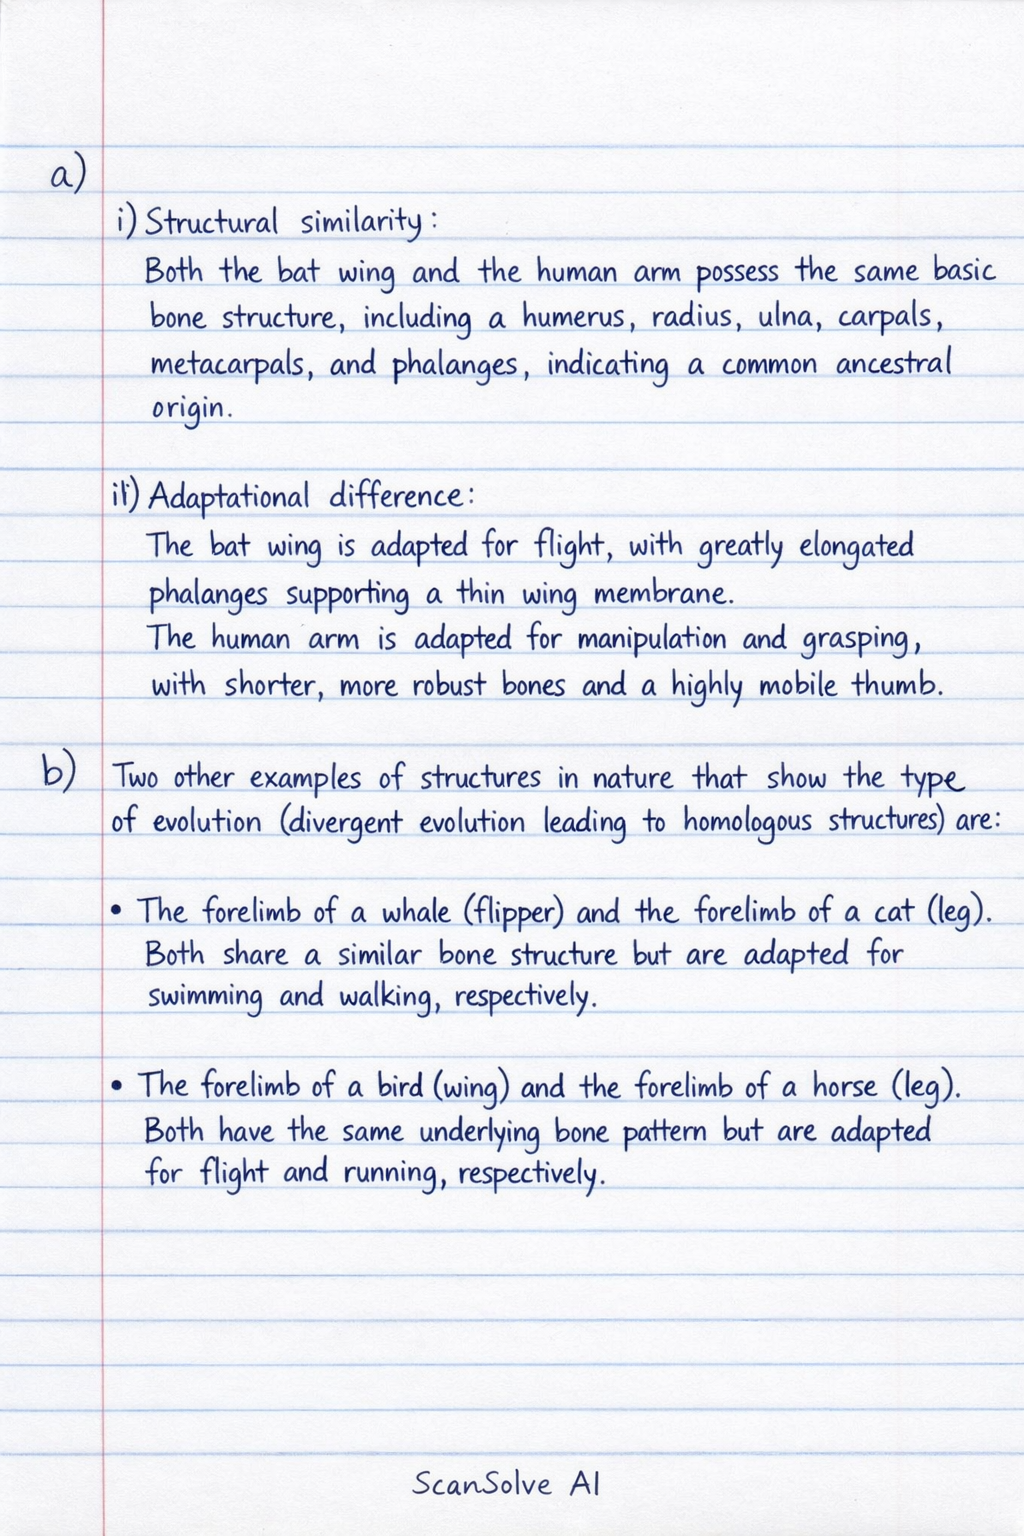 a)
i) Structural similarity:
Both the bat wing and the human arm possess the same basic
bone structure, including a humerus, radius, ulna, carpals,
metacarpals, and phalanges, indicating a common ancestral
origin.
ii) Adaptational difference:
The bat wing is adapted for flight, with greatly elongated
phalanges supporting a thin wing membrane.
The human arm is adapted for manipulation and grasping,
with shorter, more robust bones and a highly mobile thumb.
b) Two other examples of structures in nature that show the type
of evolution (divergent evolution leading to homologous structures) are:
• The forelimb of a whale (flipper) and the forelimb of a cat (leg).
Both share a similar bone structure but are adapted for
swimming and walking, respectively.
• The forelimb of a bird (wing) and the forelimb of a horse (leg).
Both have the same underlying bone pattern but are adapted
for flight and running, respectively.
ScanSolve AI